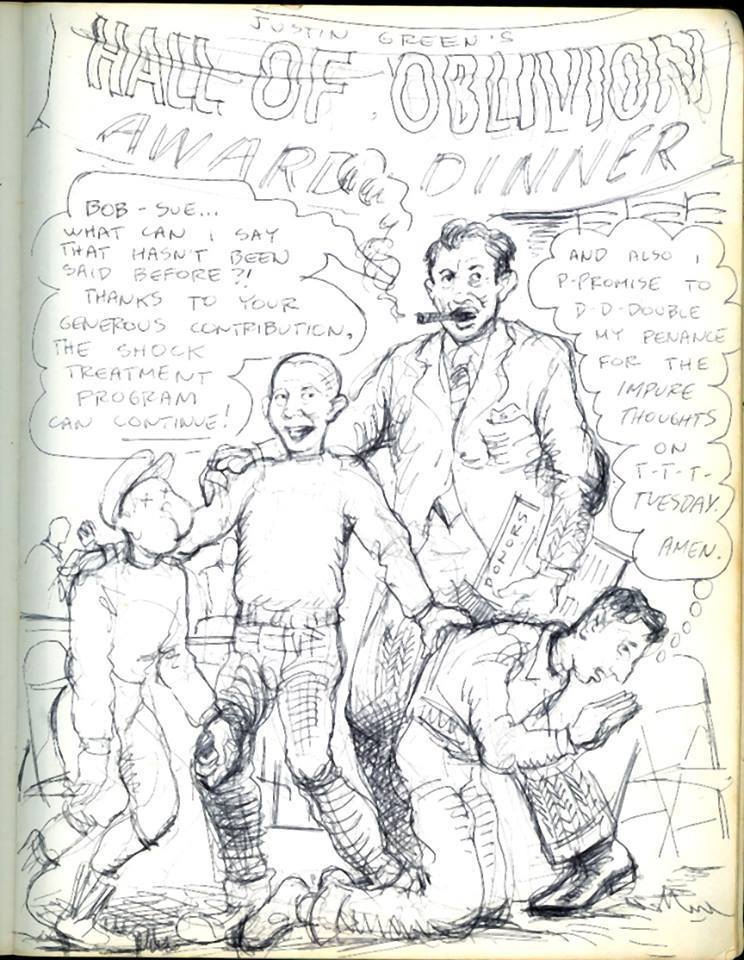 JUSTIN GREEN'S
HALL OF OBLIVION
AWARD DINNER
BOB - SUE...
WHAT CAN I SAY
THAT HASN'T BEEN
SAID BEFORE?!
THANKS TO YOUR
GENEROUS CONTRIBUTION,
THE SHOCK
TREATMENT
PROGRAM
CAN CONTINUE!
AND ALSO I
P-PROMISE TO
D-D-DOUBLE
MY PENANCE
FOR THE
IMPURE
THOUGHTS
ON
T-T-T-
TUESDAY.
AMEN.
DONORS